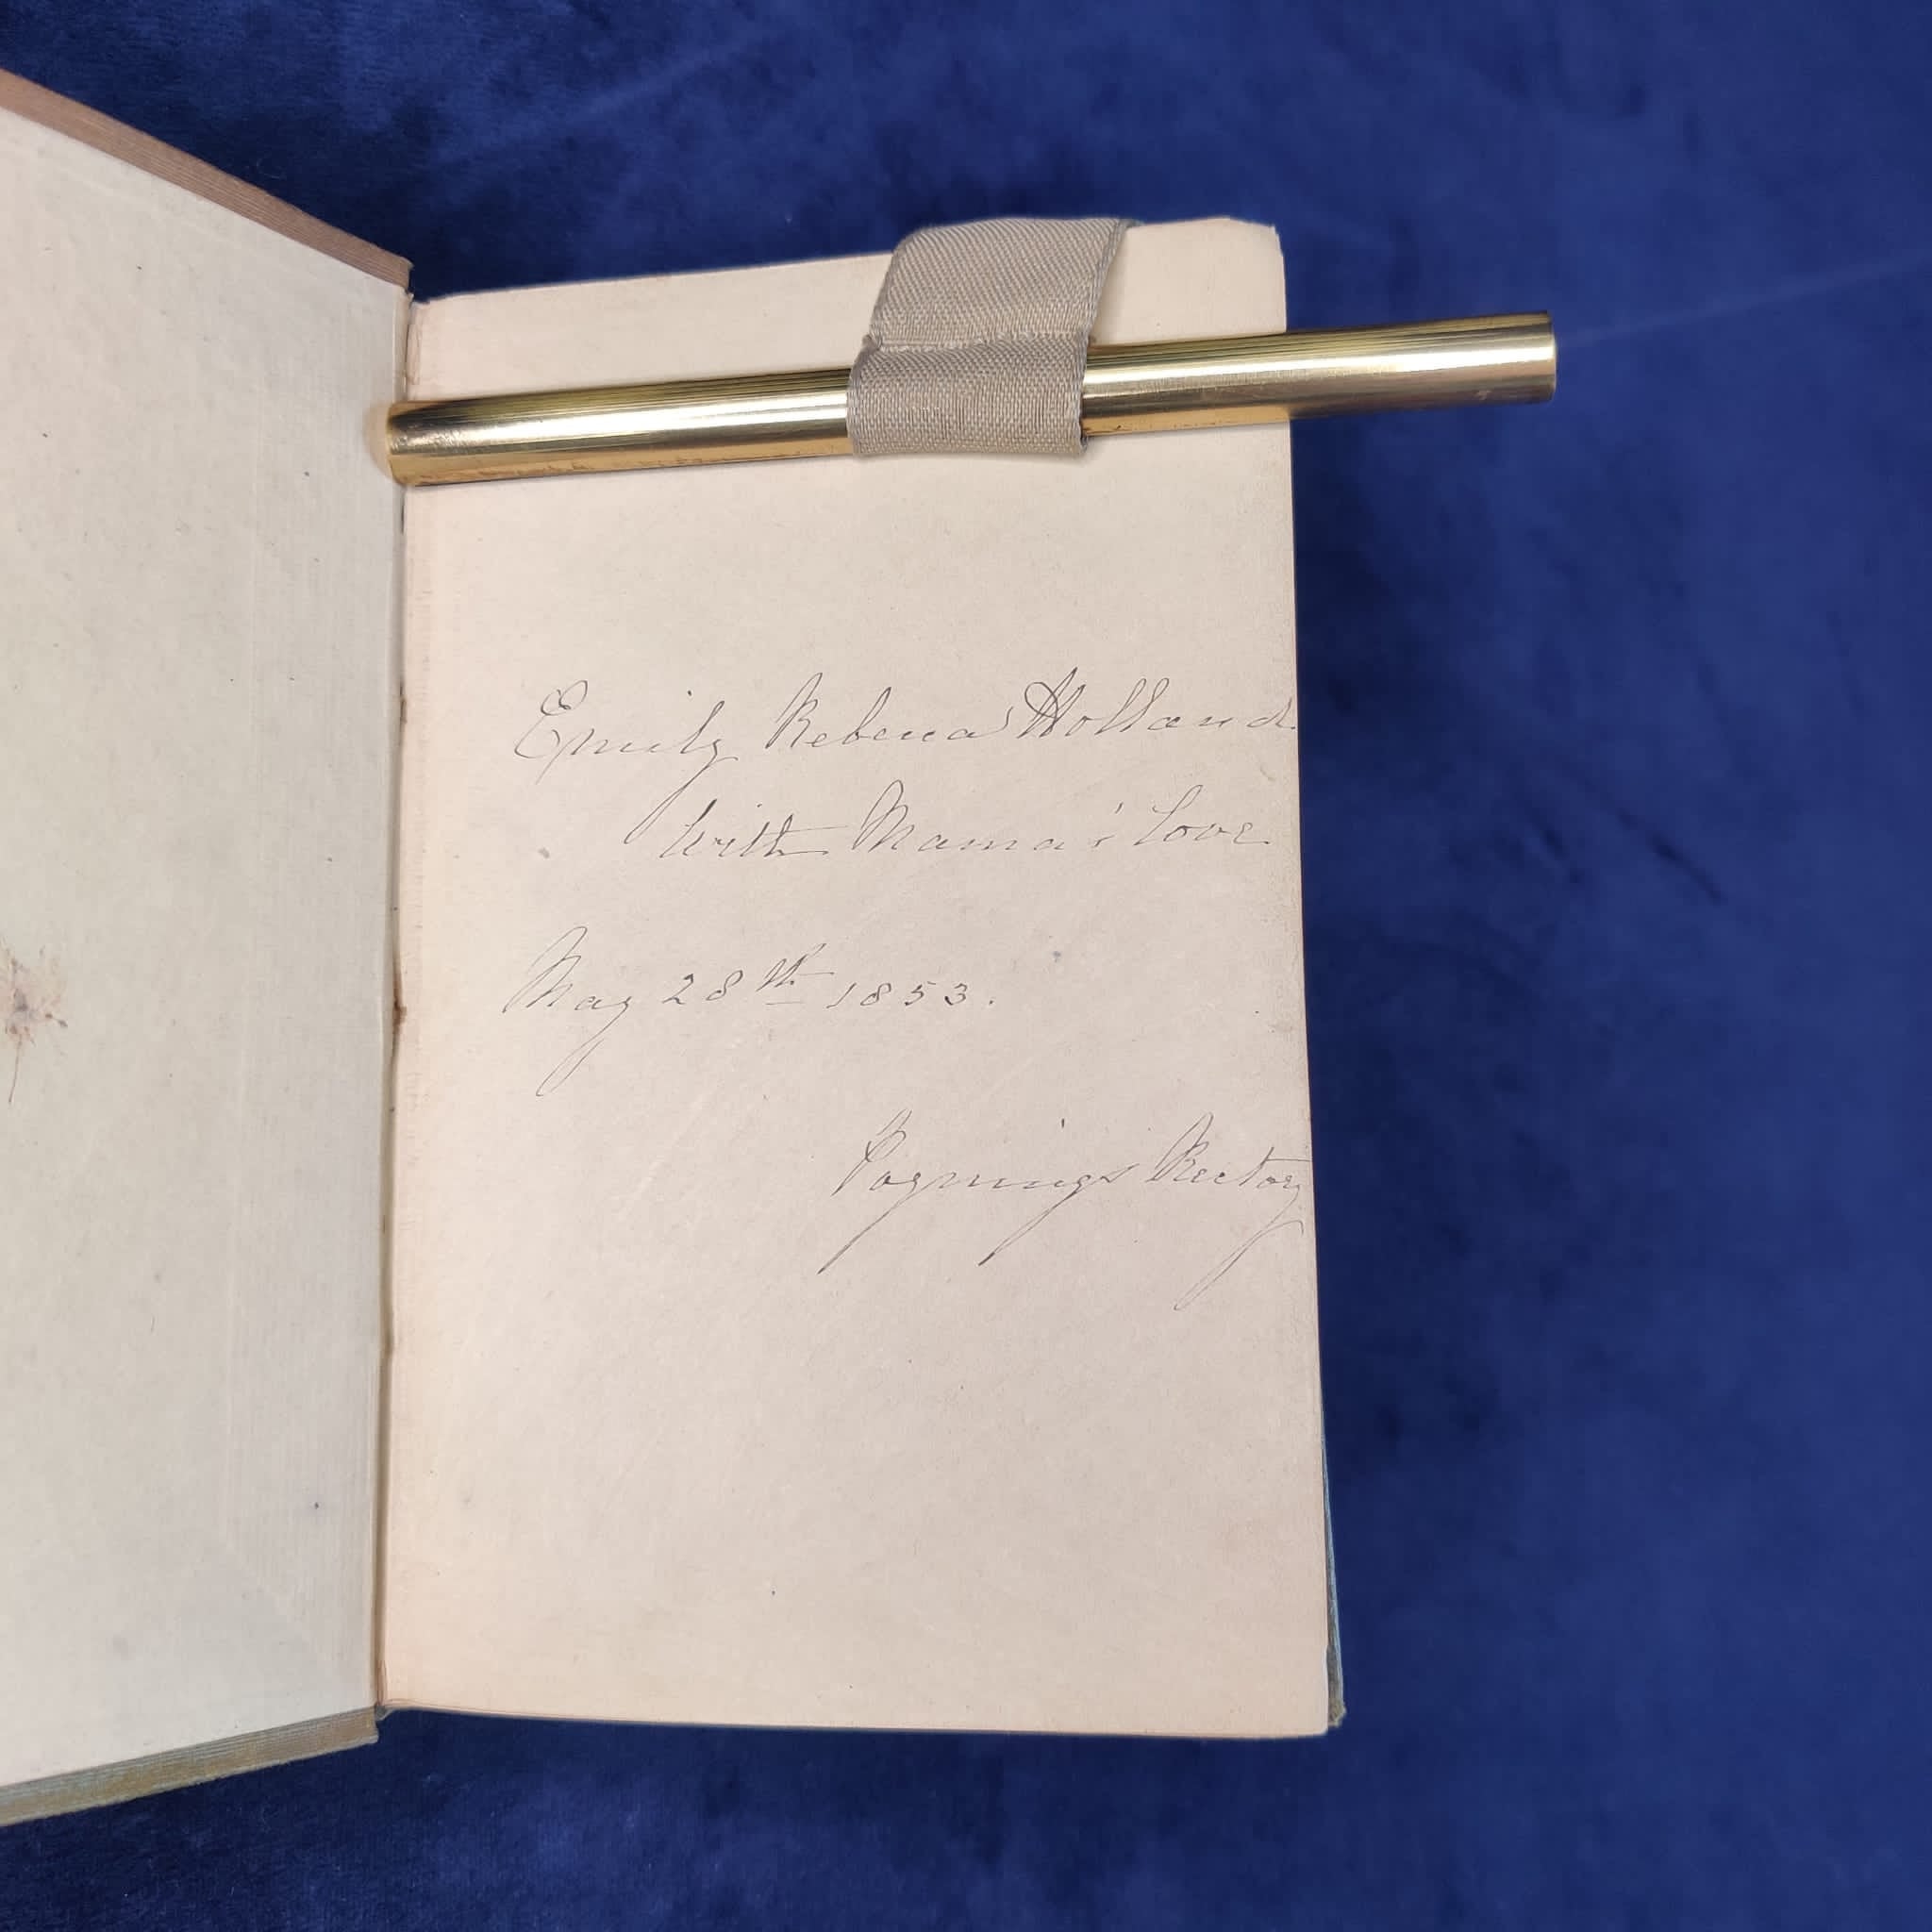 Emily Rebecca Holland
With Mama's Love
May 28th 1853.
Poynings Rectory